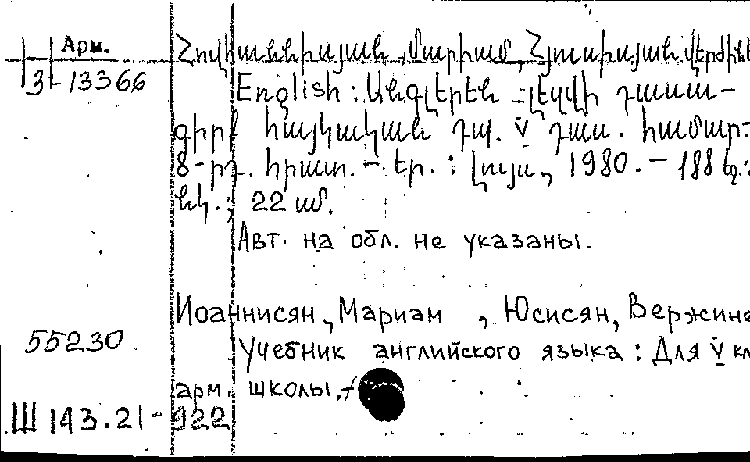 Арм.
3-13366
Հովհաննիսյան, Մարիամ, Հյուսիսյան, Վերժինե
English : Անգլերեն լեզվի դասա-
գիրք հայկական դպ. V դաս. համար.-
8-րդ. հրատ. - Եր. : Լույս, 1980. - 188 էջ.:
նկ.; 22 սմ.
Авт. на обл. не указаны.
Иоаннисян, Мариам , Юсисян, Вержине
55230
Учебник английского языка : Для V кл
арм. школы.
Ш 143.21-922